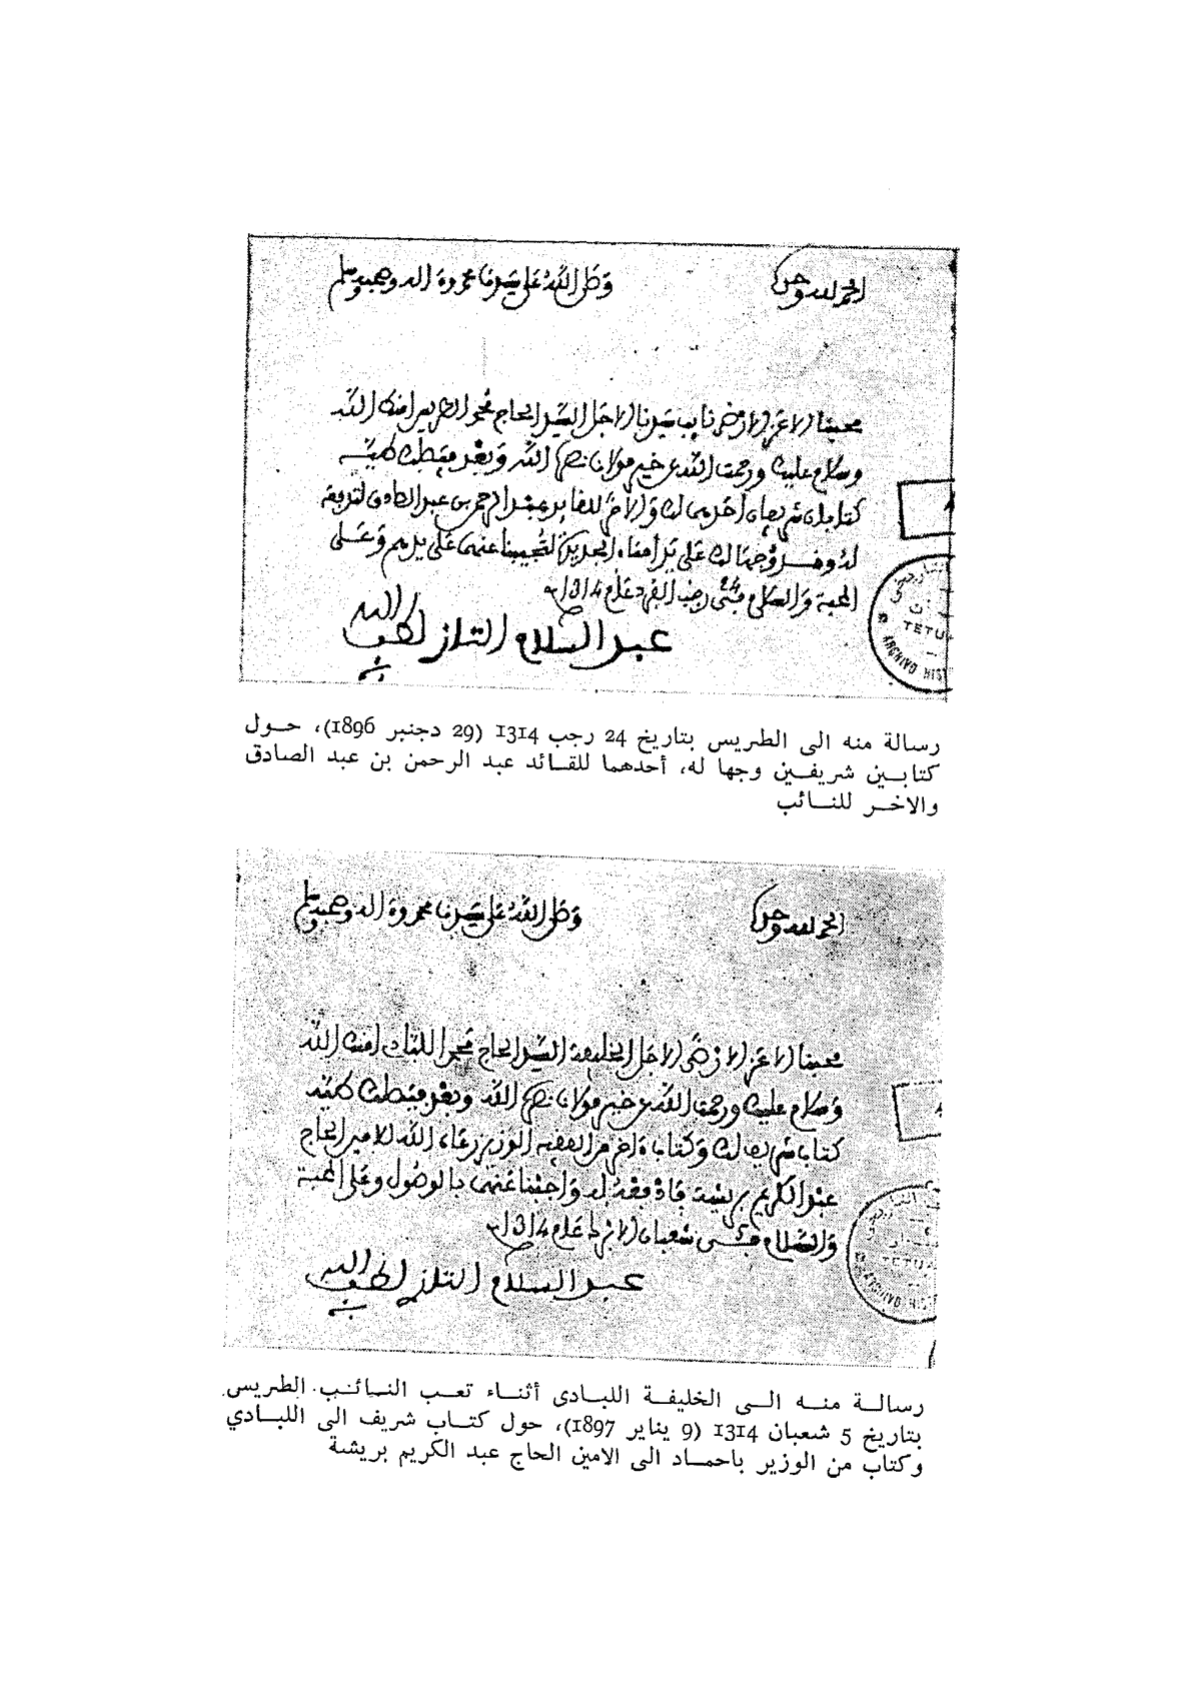 الحمد لله وحده
وصلى الله على سيدنا محمد وءاله وصحبه وسلم
محبنا الاعز الارضى نايب سيدنا الاجل السيد الحاج محمد الطريس امنك الله
وسلام عليك ورحمت الله عن خير مولانا نصره الله وبعد فيصلك طيه
كتابان شريفان احدهما لك والاخر للقايد عبد الرحمن بن عبد الصادق لتدفعه
له وقد وجهنا لك على يد امناء الجديدة لتجيبنا عنهما على يدهم وعلى
المحبة والسلام في 24 رجب الفرد عام 1314
عبد السلام التازي لطف الله به
TETU
ARCHIVO HIS
رسالة منه الى الطريس بتاريخ 24 رجب 1314 (29 دجنبر 1896)، حول
كتابين شريفين وجها له، أحدهما للقائد عبد الرحمن بن عبد الصادق
والاخر للنائب
الحمد لله وحده
وصلى الله على سيدنا محمد وءاله وصحبه وسلم
محبنا الاعز الارضى الاجل الخليفة السيد الحاج محمد اللبادي امنك الله
وسلام عليك ورحمت الله عن خير مولانا نصره الله وبعد فيصلك طيه
كتاب شريف لك وكتاب ءاخر من الفقيه الوزير رعاه الله للامين الحاج
عبد الكريم بريشة فادفعه له واجبنا عنهما بالوصول وعلى المحبة
والسلام في 5 شعبان الابرك عام 1314
عبد السلام التازي لطف الله به
TETU
ARCHIVO HIS
رسالة منه الى الخليفة اللبادى أثناء تعب النائب الطريس
بتاريخ 5 شعبان 1314 (9 يناير 1897)، حول كتاب شريف الى اللبادي
وكتاب من الوزير باحماد الى الامين الحاج عبد الكريم بريشة